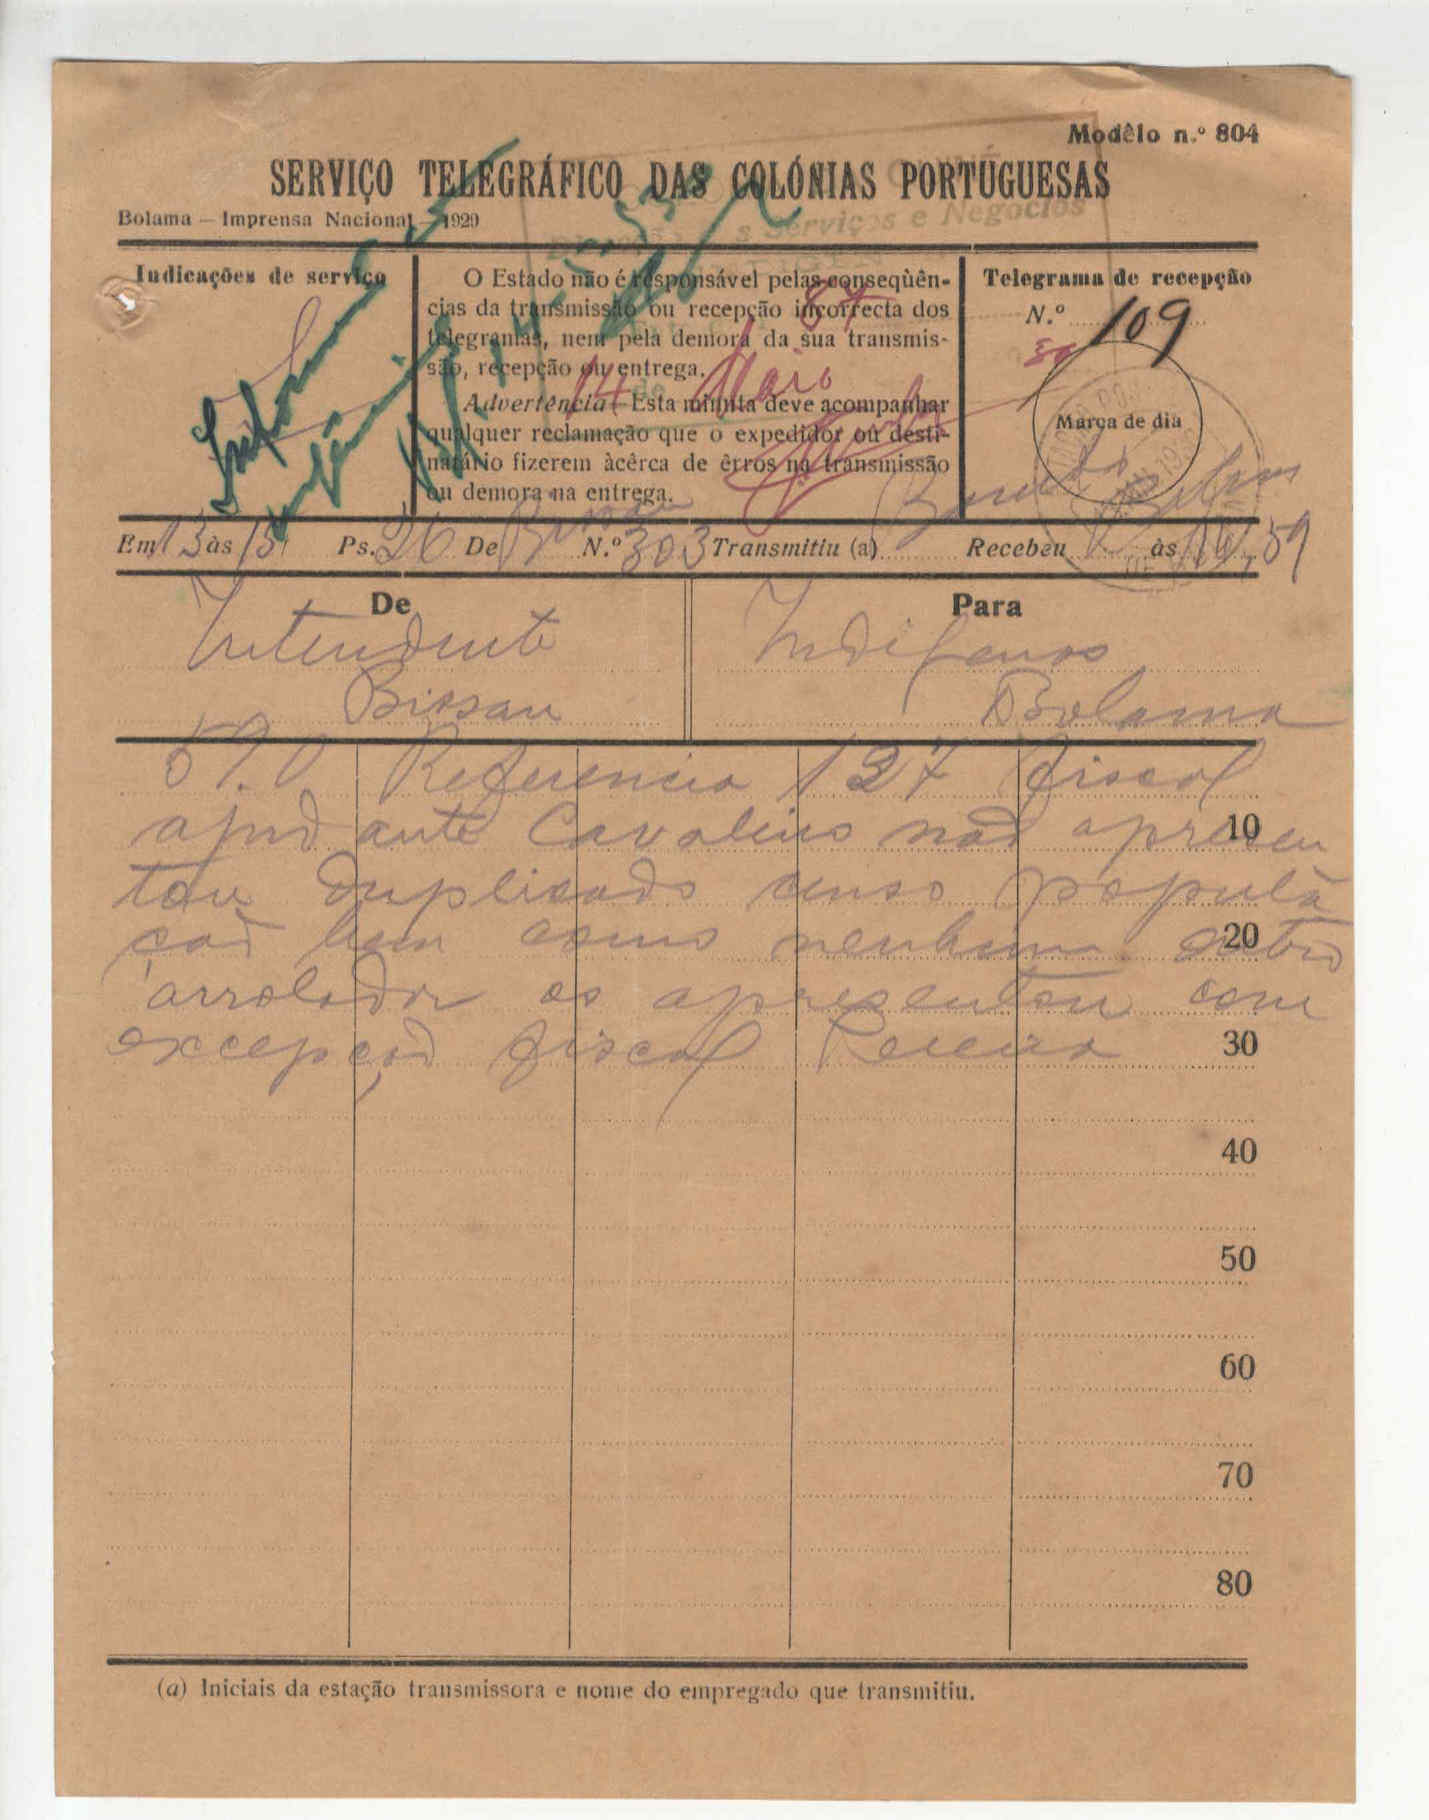 Modêlo n.º 804
SERVIÇO TELEGRÁFICO DAS COLÓNIAS PORTUGUESAS
Bolama — Imprensa Nacional — 1929
Serviços e Negócios
Indicações de serviço
O Estado não é responsável pelas conseqùên-
cias da transmissão ou recepção incorrecta dos
telegramas, nem pela demora da sua transmis-
são, recepção ou entrega.
Advertência — Esta minuta deve acompanhar
qualquer reclamação que o expedidor ou desti-
natário fizerem àcêrca de êrros na transmissão
ou demora na entrega.
87
14 de Maio
Telegrama de recepção
N.º 109
Marca de dia
Em 13 às 15 Ps. 26 De Bissau N.º 303 Transmitiu (a) Recebeu às
De
Para
Intendente
Indigenas
Bissau
Bolama
Referencia 127 fiscal
ajudante Cavaleiro não apresen
10
tou duplicado censo popula
ção bem como nenhum outro
20
arrolador os apresentou com
excepção fiscal Pereira
30
40
50
60
70
80
(a) Iniciais da estação transmissora e nome do empregado que transmitiu.